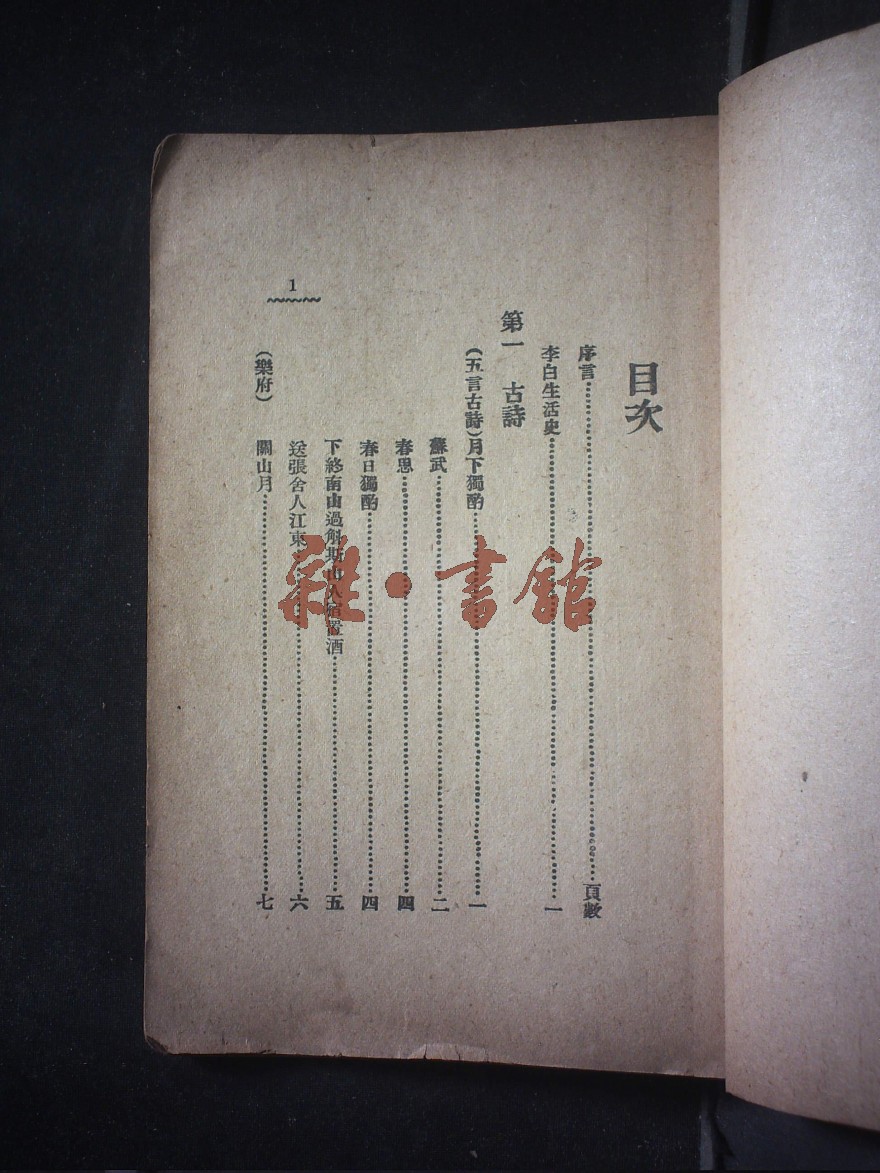 目次
序言……頁數
李白生活史……一
第一 古詩
(五言古詩)月下獨酌……一
蘇武……二
春思……四
春日獨酌……四
下終南山過斛斯山人宿置酒……五
送張舍人江東……六
(樂府) 關山月……七
1
雜·書館